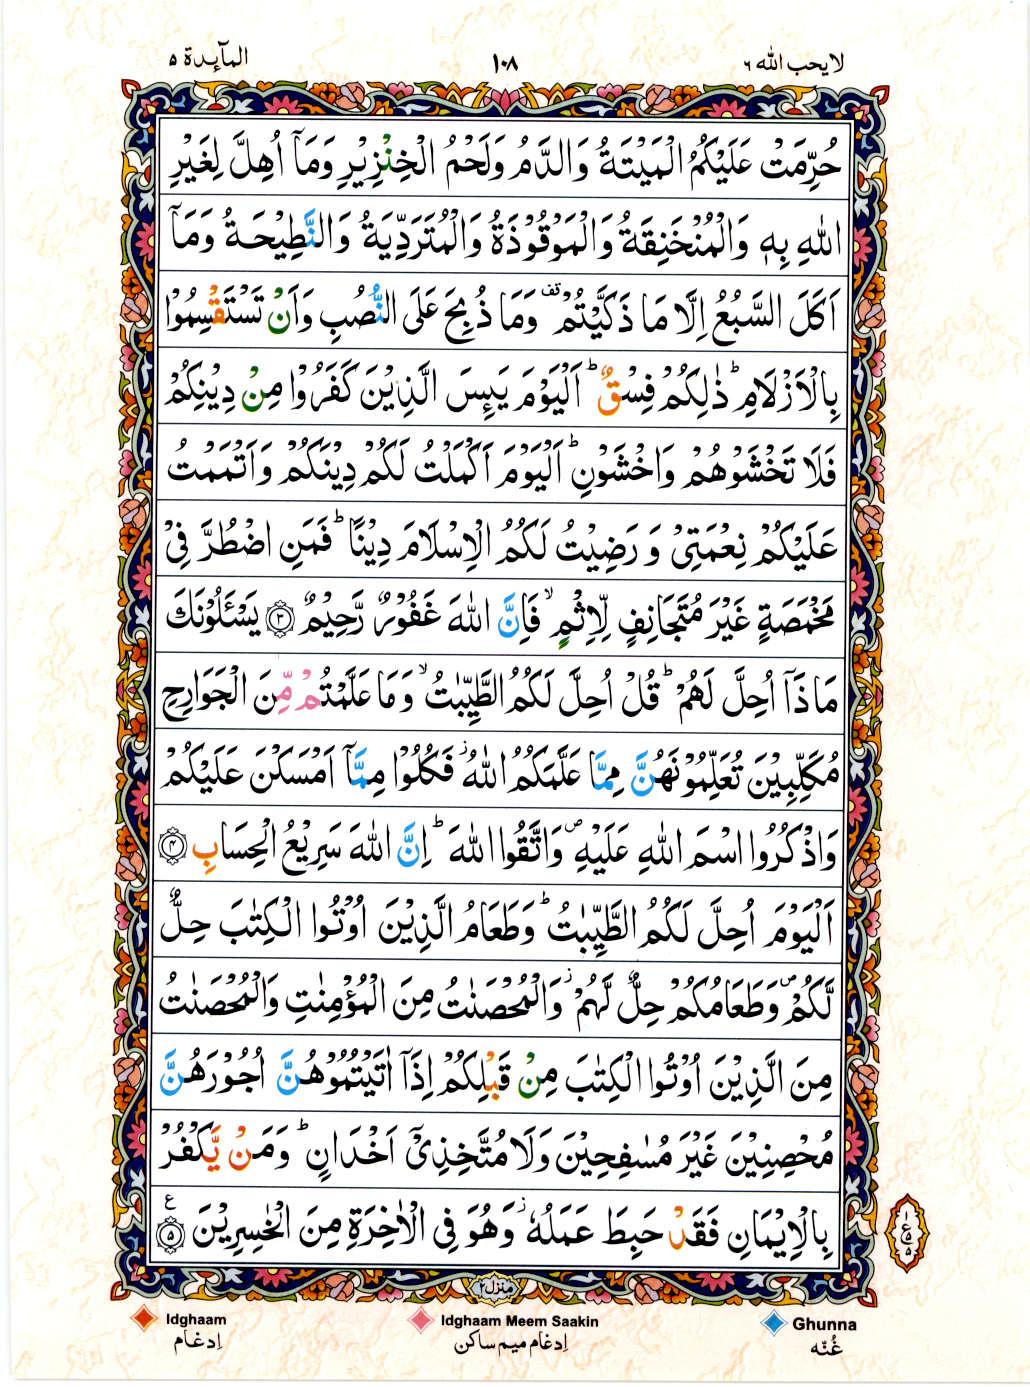 المآىِٕدة ٥
١٠٨
لا يحب الله ٦
حُرِّمَتْ عَلَيْكُمُ الْمَيْتَةُ وَالدَّمُ وَلَحْمُ الْخِنْزِيْرِ وَمَاۤ اُهِلَّ لِغَيْرِ
اللّٰهِ بِهٖ وَالْمُنْخَنِقَةُ وَالْمَوْقُوْذَةُ وَالْمُتَرَدِّيَةُ وَالنَّطِيْحَةُ وَمَاۤ
اَكَلَ السَّبُعُ اِلَّا مَا ذَكَّيْتُمْ ۫ وَمَا ذُبِحَ عَلَى النُّصُبِ وَاَنْ تَسْتَقْسِمُوْا
بِالْاَزْلَامِ ؕ ذٰلِكُمْ فِسْقٌ ؕ اَلْيَوْمَ يَىِٕسَ الَّذِيْنَ كَفَرُوْا مِنْ دِيْنِكُمْ
فَلَا تَخْشَوْهُمْ وَاخْشَوْنِ ؕ اَلْيَوْمَ اَكْمَلْتُ لَكُمْ دِيْنَكُمْ وَاَتْمَمْتُ
عَلَيْكُمْ نِعْمَتِيْ وَ رَضِيْتُ لَكُمُ الْاِسْلَامَ دِيْنًا ؕ فَمَنِ اضْطُرَّ فِيْ
مَخْمَصَةٍ غَيْرَ مُتَجَانِفٍ لِّاِثْمٍ ۙ فَاِنَّ اللّٰهَ غَفُوْرٌ رَّحِيْمٌ ۝٣ يَسْـَٔلُوْنَكَ
مَاذَاۤ اُحِلَّ لَهُمْ ؕ قُلْ اُحِلَّ لَكُمُ الطَّيِّبٰتُ ۙ وَمَا عَلَّمْتُمْ مِّنَ الْجَوَارِحِ
مُكَلِّبِيْنَ تُعَلِّمُوْنَهُنَّ مِمَّا عَلَّمَكُمُ اللّٰهُ ؗ فَكُلُوْا مِمَّاۤ اَمْسَكْنَ عَلَيْكُمْ
وَاذْكُرُوا اسْمَ اللّٰهِ عَلَيْهِ ۪ وَاتَّقُوا اللّٰهَ ؕ اِنَّ اللّٰهَ سَرِيْعُ الْحِسَابِ ۝٤
اَلْيَوْمَ اُحِلَّ لَكُمُ الطَّيِّبٰتُ ؕ وَطَعَامُ الَّذِيْنَ اُوْتُوا الْكِتٰبَ حِلٌّ
لَّكُمْ ۪ وَطَعَامُكُمْ حِلٌّ لَّهُمْ ؗ وَالْمُحْصَنٰتُ مِنَ الْمُؤْمِنٰتِ وَالْمُحْصَنٰتُ
مِنَ الَّذِيْنَ اُوْتُوا الْكِتٰبَ مِنْ قَبْلِكُمْ اِذَاۤ اٰتَيْتُمُوْهُنَّ اُجُوْرَهُنَّ
مُحْصِنِيْنَ غَيْرَ مُسٰفِحِيْنَ وَلَا مُتَّخِذِيْۤ اَخْدَانٍ ؕ وَمَنْ يَّكْفُرْ
بِالْاِيْمَانِ فَقَدْ حَبِطَ عَمَلُهٗ ؗ وَهُوَ فِي الْاٰخِرَةِ مِنَ الْخٰسِرِيْنَ ۝٥ ع
منزل ٢
Idghaam
اِدغام
Idghaam Meem Saakin
اِدغام میم ساکن
Ghunna
غُنّه